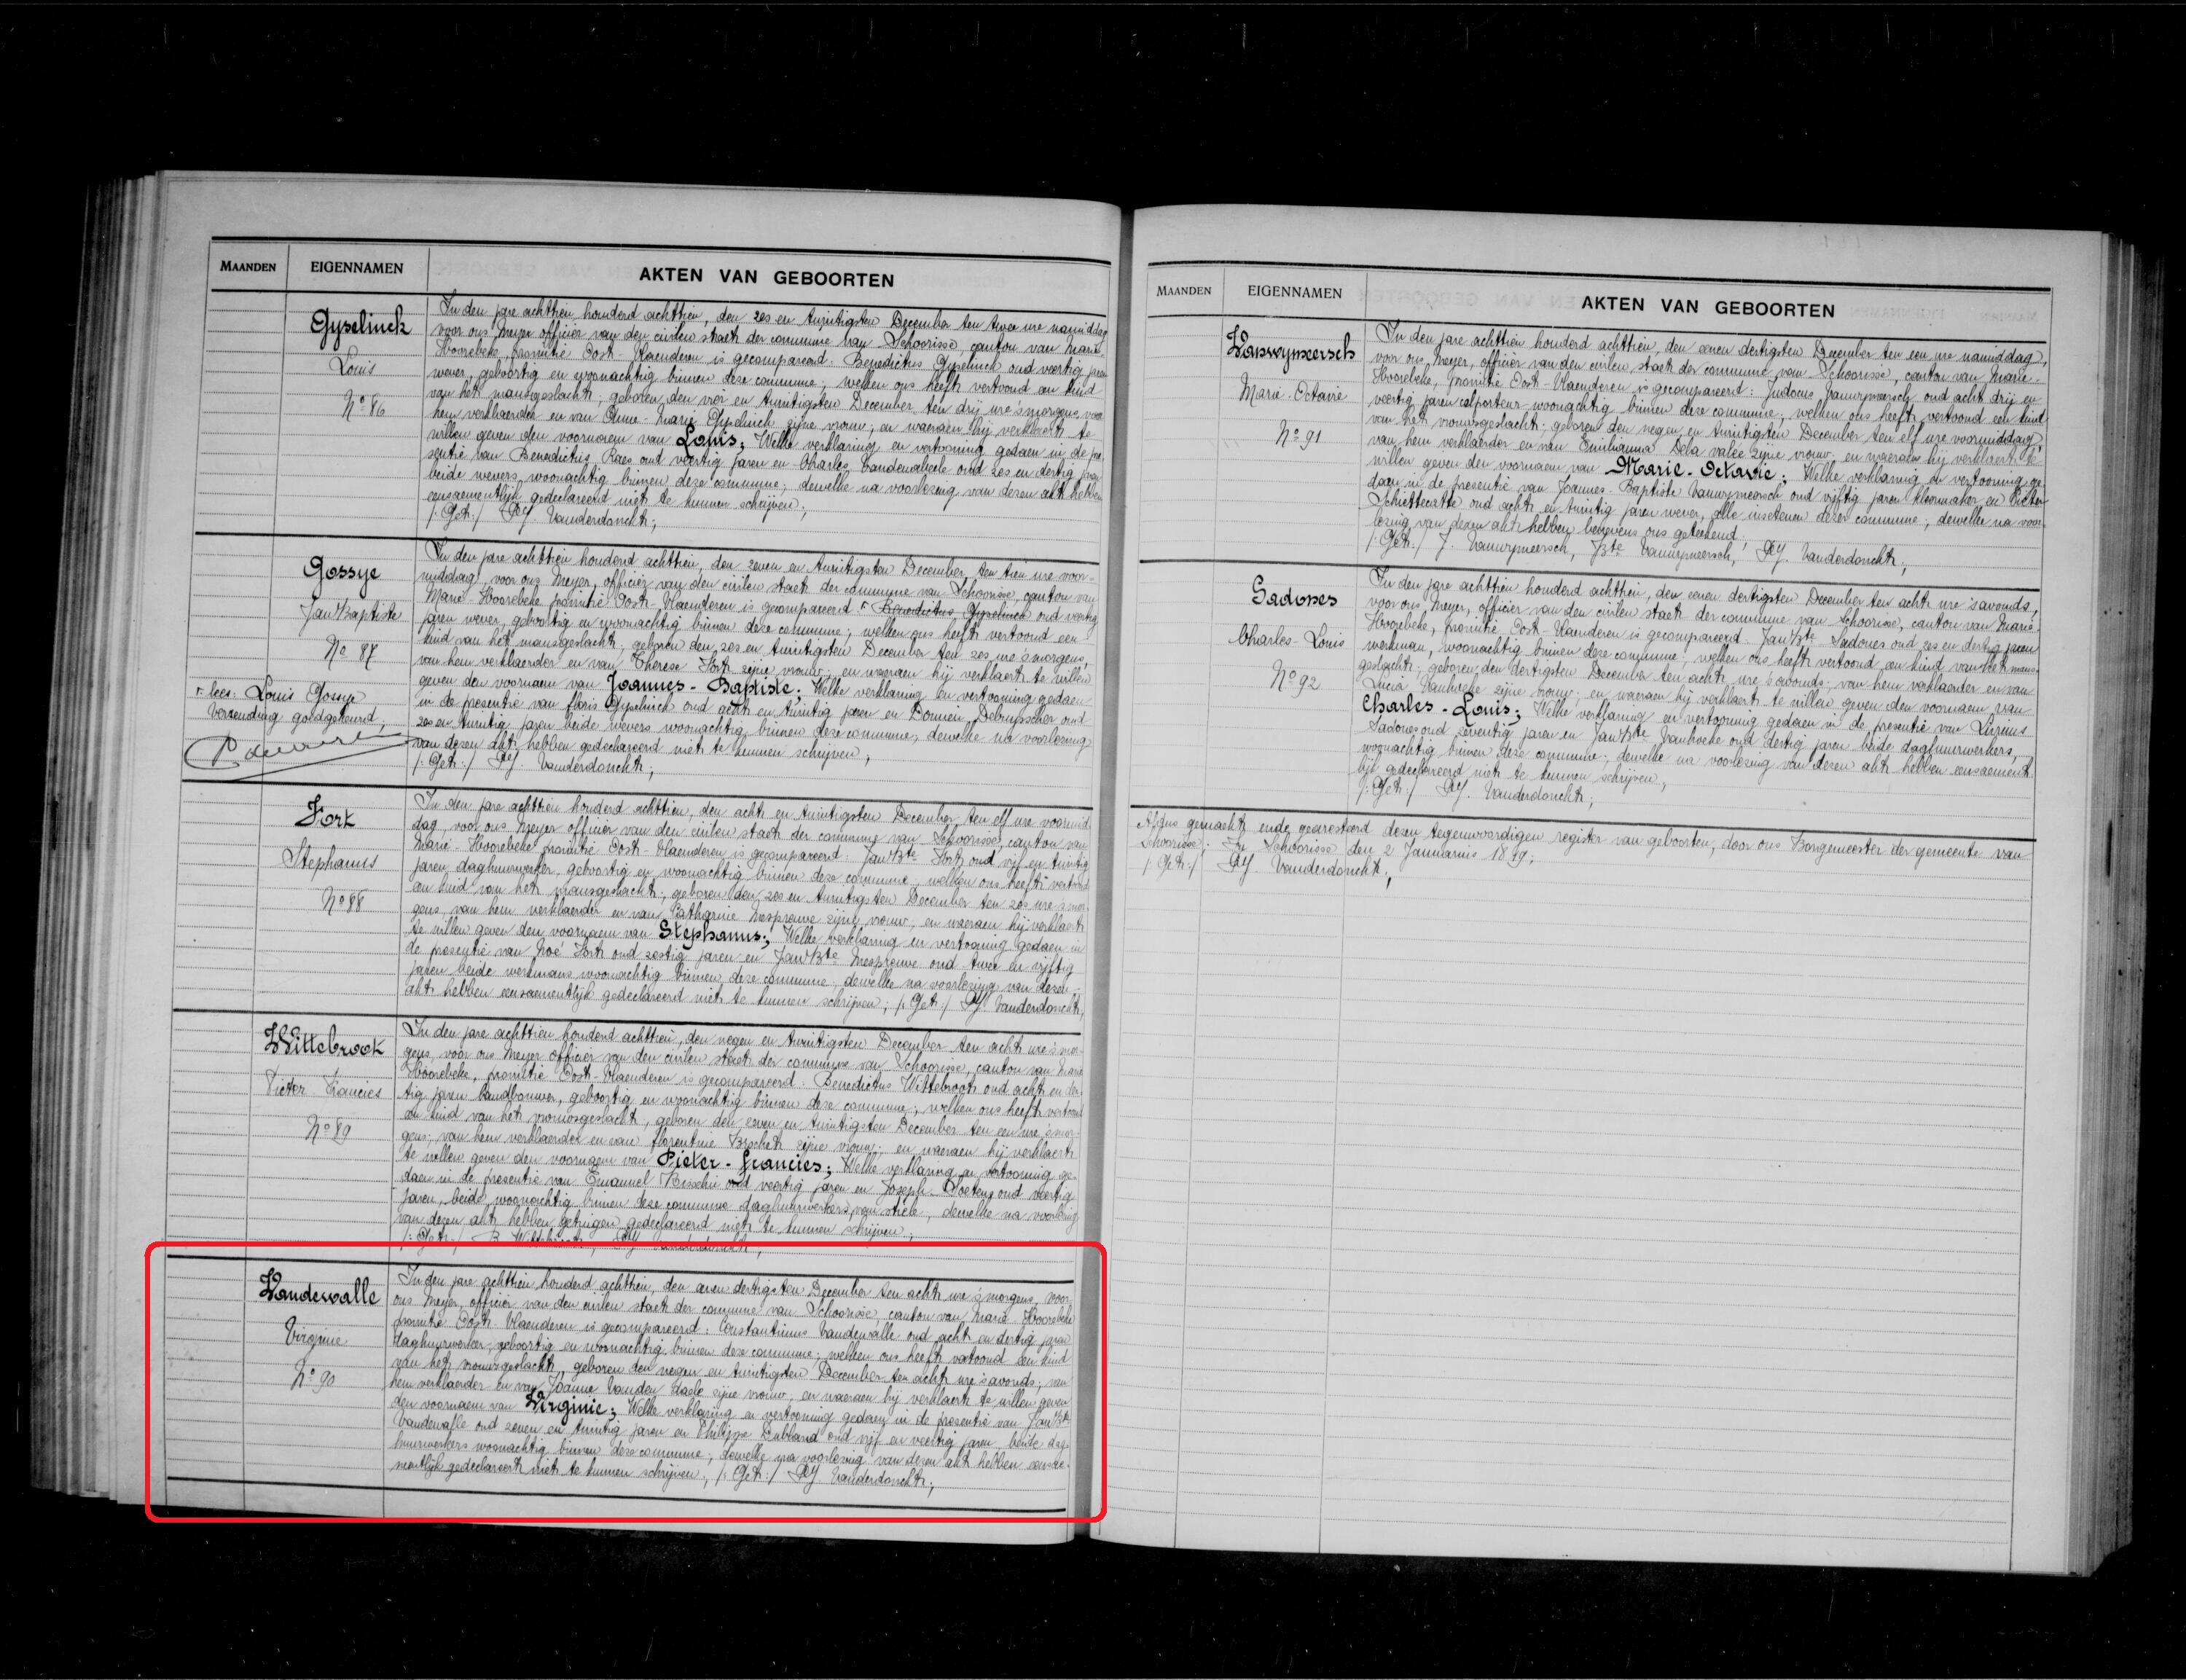 MAANDEN
EIGENNAMEN
AKTEN VAN GEBOORTEN
Gyselinck
Louis
Nº 86
In den jare achttien honderd achttien, den zes en twintigsten December ten twee ure namiddag
voor ons Meyer officier van den civilen staet der commune van Schoorisse, canton van Marie
Hoorebeke, provintie Oost-Vlaenderen is gecompareerd: Benedictus Gyselinck oud veertig jaren
wever, geboortig en woonachtig binnen dese commune; welken ons heeft vertoond een kind
van het mansgeslacht, geboren den vier en twintigsten December ten drij ure 'smorgens, van
hem verklaerder en van Anne-Marie Gyselinck zijne vrouw; en waeraen hij verklaert te
willen geven den voornaem van Louis; Welke verklaring en vertooning gedaen in de pre
sentie van Benedictus Raes oud veertig jaren en Charles Vandewalle oud zes en dertig jaren
beide wevers, woonachtig binnen deze commune; dewelke na voorlezing van dezen akt hebben
eensaementlijk gedeclareerd niet te kunnen schrijven;
/:Get:/ PJ. Vanderdonckt;
Gossye
Jan Baptiste
Nº 87
r lees: Louis Gossye
Verzending goedgekeurd,
In den jare achttien honderd achttien, den zeven en twintigsten December, ten tien ure voor-
middag, voor ons Meyer, officier van den civilen staet der commune van Schoorisse, canton van
Marie-Hoorebeke provintie Oost-Vlaenderen is gecompareerd: r Benedictus Gyselinck oud veertig
jaren wever, geboortig en woonachtig binnen deze commune; welken ons heeft vertoond een
kind van het mansgeslacht, geboren den zes en twintigsten December ten zes ure 'smorgens,
van hem verklaerder en van Therese Fort zijne vrouw; en waeraen hij verklaert te willen
geven den voornaem van Joannes-Baptiste; Welke verklaring en vertooning gedaen
in de presentie van floris Gyselinck oud acht en twintig jaren en Domien Debruyscher oud
zes en twintig jaren beide wevers woonachtig binnen deze commune, dewelke na voorlezing
van dezen akt hebben gedeclareerd niet te kunnen schrijven;
/:Get:/ PJ. Vanderdonckt;
Fort
Stephanus
Nº 88
In den jare achttien honderd achttien, den acht en twintigsten December ten elf ure voormid
dag, voor ons Meyer officier van den civilen staet der commune van Schoorisse, canton van
Marie-Hoorebeke provintie Oost-Vlaenderen is gecompareerd: Jan Bte Fort oud vijf en twintig
jaren, daghuurwerker, geboortig en woonachtig binnen deze commune, welken ons heeft vertoond
een kind van het mansgeslacht, geboren den zes en twintigsten December ten zes ure 'smor-
gens, van hem verklaerder en van Catharine Mespreuve zijne vrouw, en waeraen hij verklaert
te willen geven den voornaem van Stephanus; Welke verklaring en vertooning gedaen in
de presentie van Noé Fort oud zestig jaren en Jan Bte Mespreuve oud twee en vijftig
jaren beide werkmans, woonachtig binnen deze commune, dewelke na voorlezing van dezen
akt hebben eensaementlijk gedeclareerd niet te kunnen schrijven; /:Get:/ PJ. Vanderdonckt,
Wittebroot
Pieter Francies
Nº 89
In den jare achttien honderd achttien, den negen en twintigsten December ten acht ure 'smor-
gens, voor ons Meyer officier van den civilen staet der commune van Schoorisse, canton van Marie
Hoorebeke, provintie Oost-Vlaenderen is gecompareerd: Benedictus Wittebroot oud acht en der-
tig jaren landbouwer, geboortig en woonachtig binnen deze commune; welken ons heeft vertoond
een kind van het vrouwsgeslacht, geboren den zeven en twintigsten December ten een ure 'smor-
gens; van hem verklaerder en van florentine zijne vrouw; en waeraen hij verklaert
te willen geven den voornaem van Pieter-francies; Welke verklaring en vertooning ge-
daen in de presentie van Emanuel Bisschu oud veertig jaren en Joseph Soetens oud veertig
jaren, beide woonachtig binnen deze commune daghuurwerkers van stiele, dewelke na voorlezing
van dezen akt hebben getuigen gedeclareerd niet te kunnen schrijven;
/:Get:/ B. Wittebroot, PJ. Vanderdonckt;
Vandewalle
Virginie
Nº 90
In den jare achttien honderd achttien, den eenen dertigsten December ten acht ure 'smorgens, voor
ons Meyer, officier van den civilen staet der commune van Schoorisse, canton van Marie Hoorebeke
provintie Oost-Vlaenderen is gecompareerd: Constantinus Vandewalle oud acht en dertig jaren
daghuurwerker, geboortig en woonachtig binnen deze commune; welken ons heeft vertoond een kind
van het vrouwsgeslacht, geboren den negen en twintigsten December ten acht ure 'savonds; van
hem verklaerder en van Joanne Vanden daele zijne vrouw, en waeraen hij verklaert te willen geven
den voornaem van Virginie; Welke verklaring en vertooning gedaen in de presentie van Jan Bte
Vandewalle oud zeven en twintig jaren en Philippe Dubland oud vijf en veertig jaren, beide dag-
huurwerkers woonachtig binnen deze commune; dewelke na voorlezing van dezen akt hebben eensae-
mentlijk gedeclareert niet te kunnen schrijven, /:Get:/ PJ Vanderdonckt;
MAANDEN
EIGENNAMEN
AKTEN VAN GEBOORTEN
Vanwymeersch
Marie-Octavie
Nº 91
In den jare achttien honderd achttien, den eenen dertigsten December ten een ure namiddag,
voor ons, Meyer, officier van den civilen staet der commune van Schoorisse, canton van Marie-
Hoorebeke, provintie Oost-Vlaenderen is gecompareerd: Judocus Vanwymeersch, oud acht drij en
veertig jaren colporteur woonachtig binnen deze commune; welken ons heeft vertoond een kind
van het vrouwsgeslacht; geboren den negen en twintigsten December ten elf ure voormiddag
van hem verklaerder en van Emilianna Dela valée zijne vrouw, en waeraen hij verklaert te
willen geven den voornaem van Marie-Octavie; Welke verklaring en vertooning ge-
daen in de presentie van Joannes-Baptiste Vanwymeersch oud vijftig jaren kleermaker en Pieter
Schiettecatte oud acht en twintig jaren wever, alle insetenen dezer commune, dewelke na voor-
lezing van dezen akt hebben benevens ons geteekend.
/:Get:/ J. Vanwymeersch, J Bte Vanwymeersch, PJ. Vanderdonckt,
Sadones
Charles-Louis
Nº 92
In den jare achttien honderd achttien, den eenen dertigsten December ten acht ure 'savonds,
voor ons, Meyer, officier van den civilen staet der commune van Schoorisse, canton van Marie-
Hoorebeke, provintie Oost-Vlaenderen is gecompareerd: Jan Bte Sadones oud zes en dertig jaren
werkman, woonachtig binnen deze commune; welken ons heeft vertoond een kind van het mans-
geslacht; geboren den dertigsten December ten acht ure 'savonds; van hem verklaerder en van
Lucia Vanhoeke zijne vrouw; en waeraen hij verklaert te willen geven den voornaem van
Charles-Louis; Welke verklaring en vertooning gedaen in de presentie van Livinus
Sadones oud zeventig jaren en Jan Bte Vanhoeke oud dertig jaren beide daghuurwerkers,
woonachtig binnen deze commune; dewelke na voorlezing van dezen akt hebben eensaement-
lijk gedeclareerd niet te kunnen schrijven;
/:Get:/ PJ. Vanderdonckt;
Aldus gemaekt ende gearresteerd dezen tegenwoordigen register van geboorten, door ons Borgemeester der gemeente van
Schoorisse. In Schoorisse den 2 Januarius 1819;
/:Get:/ PJ Vanderdonckt;